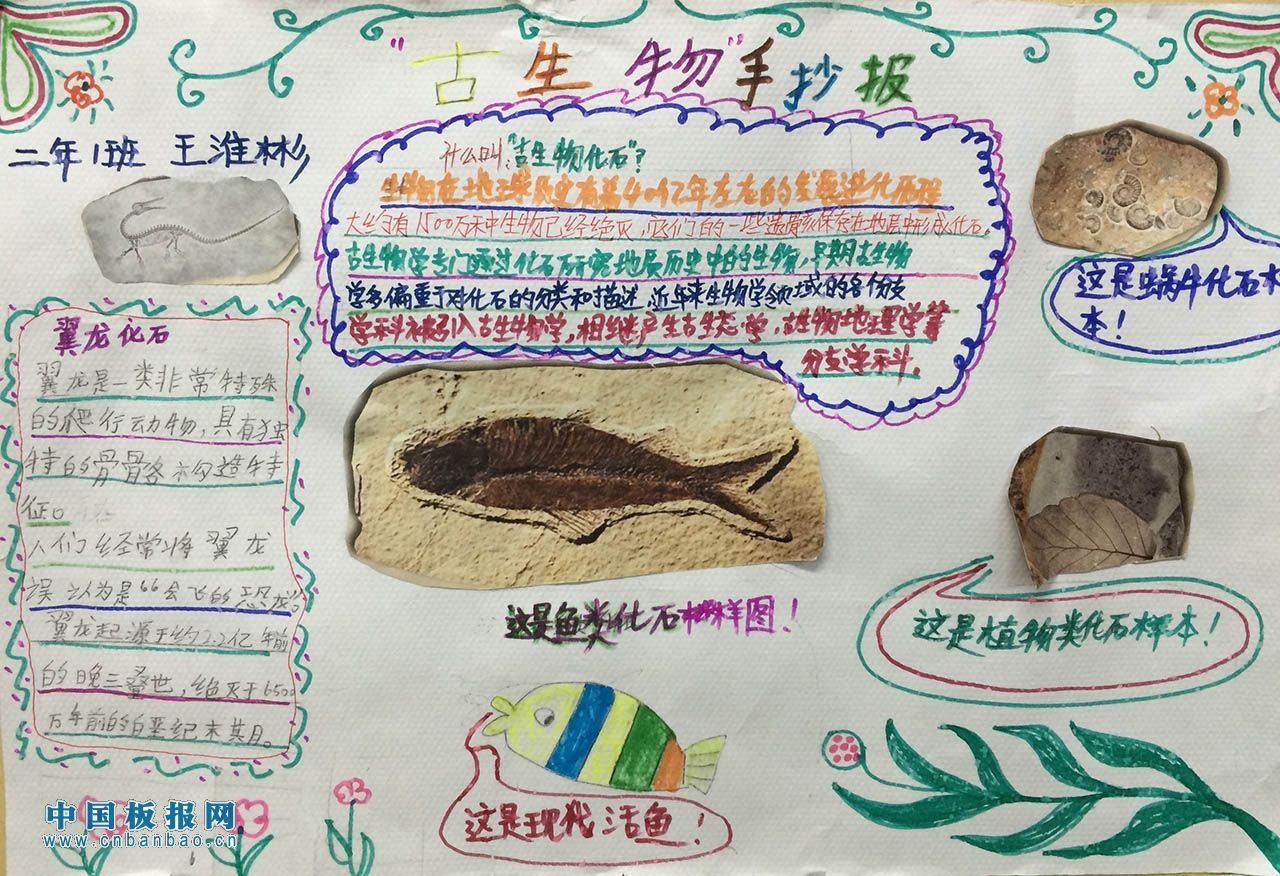 "古生物"手抄报
二年1班 王淮彬
什么叫:"古生物化石"?
生物在地球历史有着40亿年左右的发展进化历程
大约有1500万末中生物已经绝灭,它们的一些遗骨亥保存在地层中形成化石。
古生物学专门通过化石研究地层历史中的生物,早期古生物
学多偏重于对化石的分类和描述,近年来生物学领域的各个分支
学科被引入古生物学,相继产生古生态学,古生物地理学等
分支学科.
这是蜗牛化石木
本!
翼龙化石
翼龙是一类非常特殊
的爬行动物,具有独
特的骨骨各构造特
征。
人们经常将翼龙
误认为是"会飞的恐龙"。
翼龙起源于约2.2亿年前
的晚三叠世,绝灭于6500
万年前的白垩纪末其月。
这是鱼类化石样图!
这是植物类化石样本!
这是现代活鱼!
中国板报网
www.cnbanbao.cn